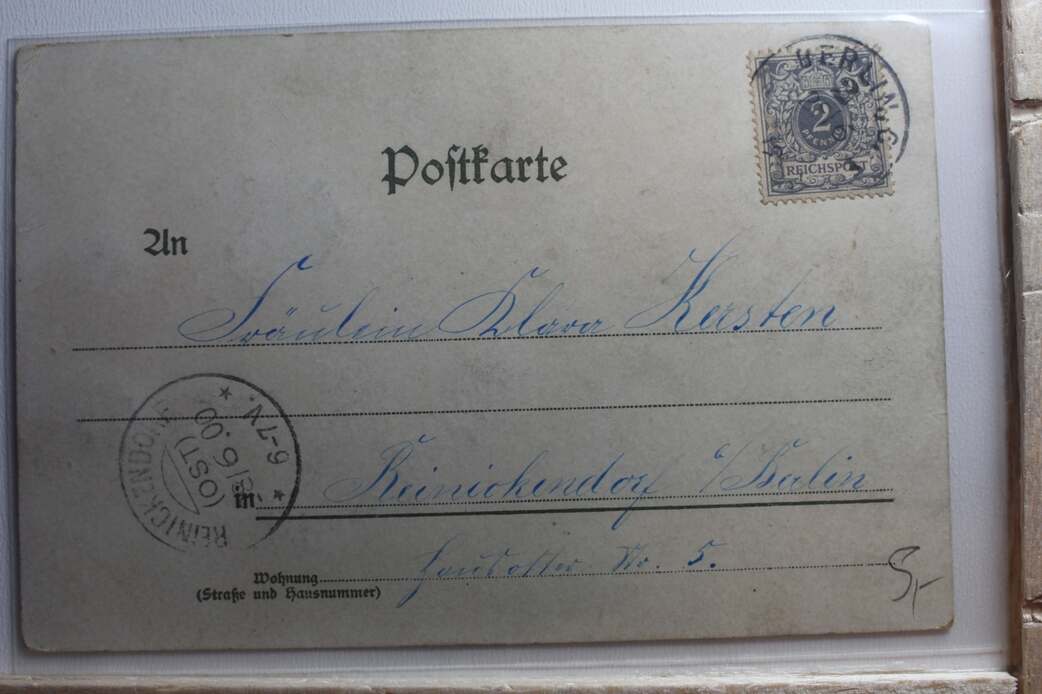 Postkarte
BERLIN, C.
2
PFENNIG
REICHSPOST
An
Fräulein Klara Kersten
REINICKENDORF
(OST)
6.00
6-7V.
in Reinickendorf b/Berlin
Wohnung
(Straße und Hausnummer)
Str. 5.
5,-